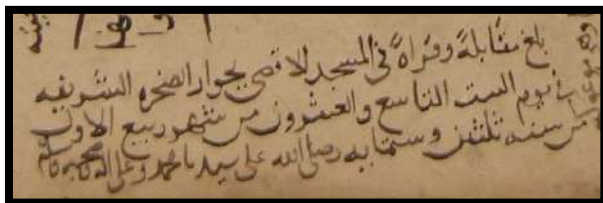 بلغ مقابلة وقراة في المسجد الاقصى بجوار الصخره الشريفه
في يوم السبت التاسع والعشرون من شهور ربيع الاول
من سنه ثلثين وستمايه وصلى الله على سيدنا محمد وعلى اله وصحبه وسلم